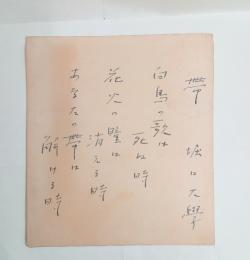 帯 堀口大學
白鳥の歌は
死ぬ時
花火の聲は
消える時
あなたの帯は
解ける時